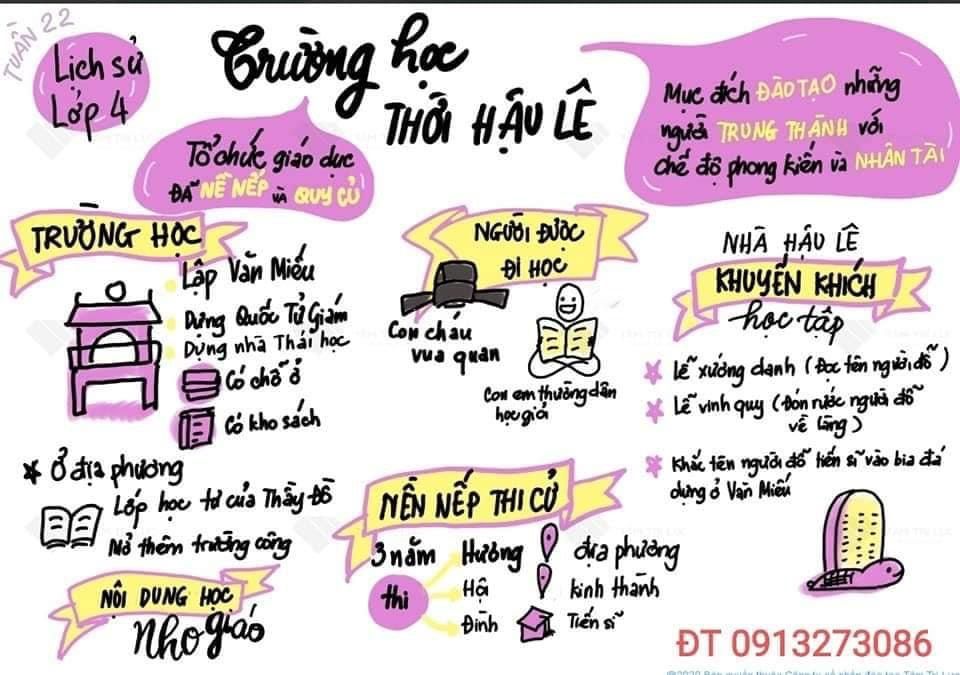 TUẦN 22
Lịch sử
Lớp 4
Trường học
THỜI HẬU LÊ
Tổ chức giáo dục
ĐÃ NỀ NẾP VÀ QUY CỦ
Mục đích ĐÀO TẠO những
người TRUNG THÀNH với
chế độ phong kiến và NHÂN TÀI
TRƯỜNG HỌC
Lập Văn Miếu
Dựng Quốc Tử Giám
Dựng nhà Thái học
Có chỗ ở
Có kho sách
Ở địa phương
Lớp học tư của Thầy Đồ
Mở thêm trường công
NỘI DUNG HỌC
Nho giáo
NGƯỜI ĐƯỢC
ĐI HỌC
Con cháu
vua quan
Con em thường dân
học giỏi
NỀN NẾP THI CỬ
3 năm
thi
Hương
địa phương
Hội
kinh thành
Đình
Tiến sĩ
NHÀ HẬU LÊ
KHUYẾN KHÍCH
học tập
Lễ xướng danh (Đọc tên người đỗ)
Lễ vinh quy (Đón rước người đỗ
về làng)
Khắc tên người đỗ tiến sĩ vào bia đá
dựng ở Văn Miếu
ĐT 0913273086